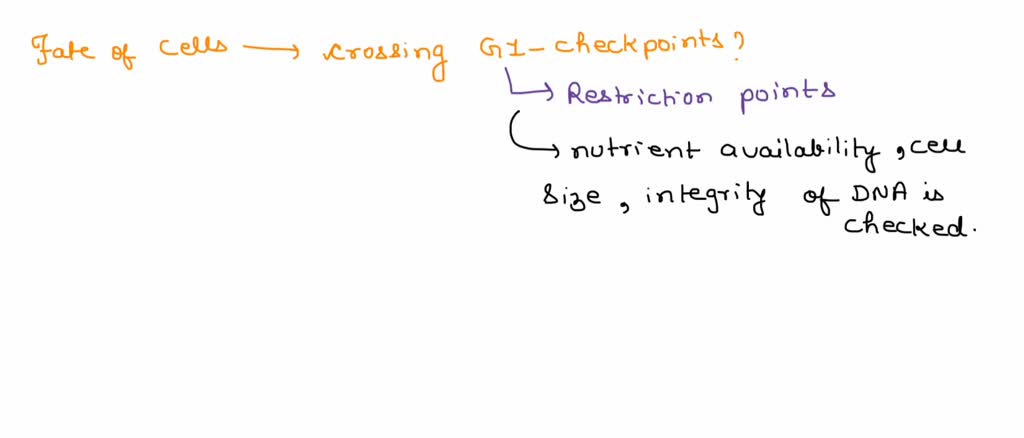 Fate of cells → crossing G1-checkpoints?
↳ Restriction points
→ nutrient availability, cell
size, integrity of DNA is
checked.